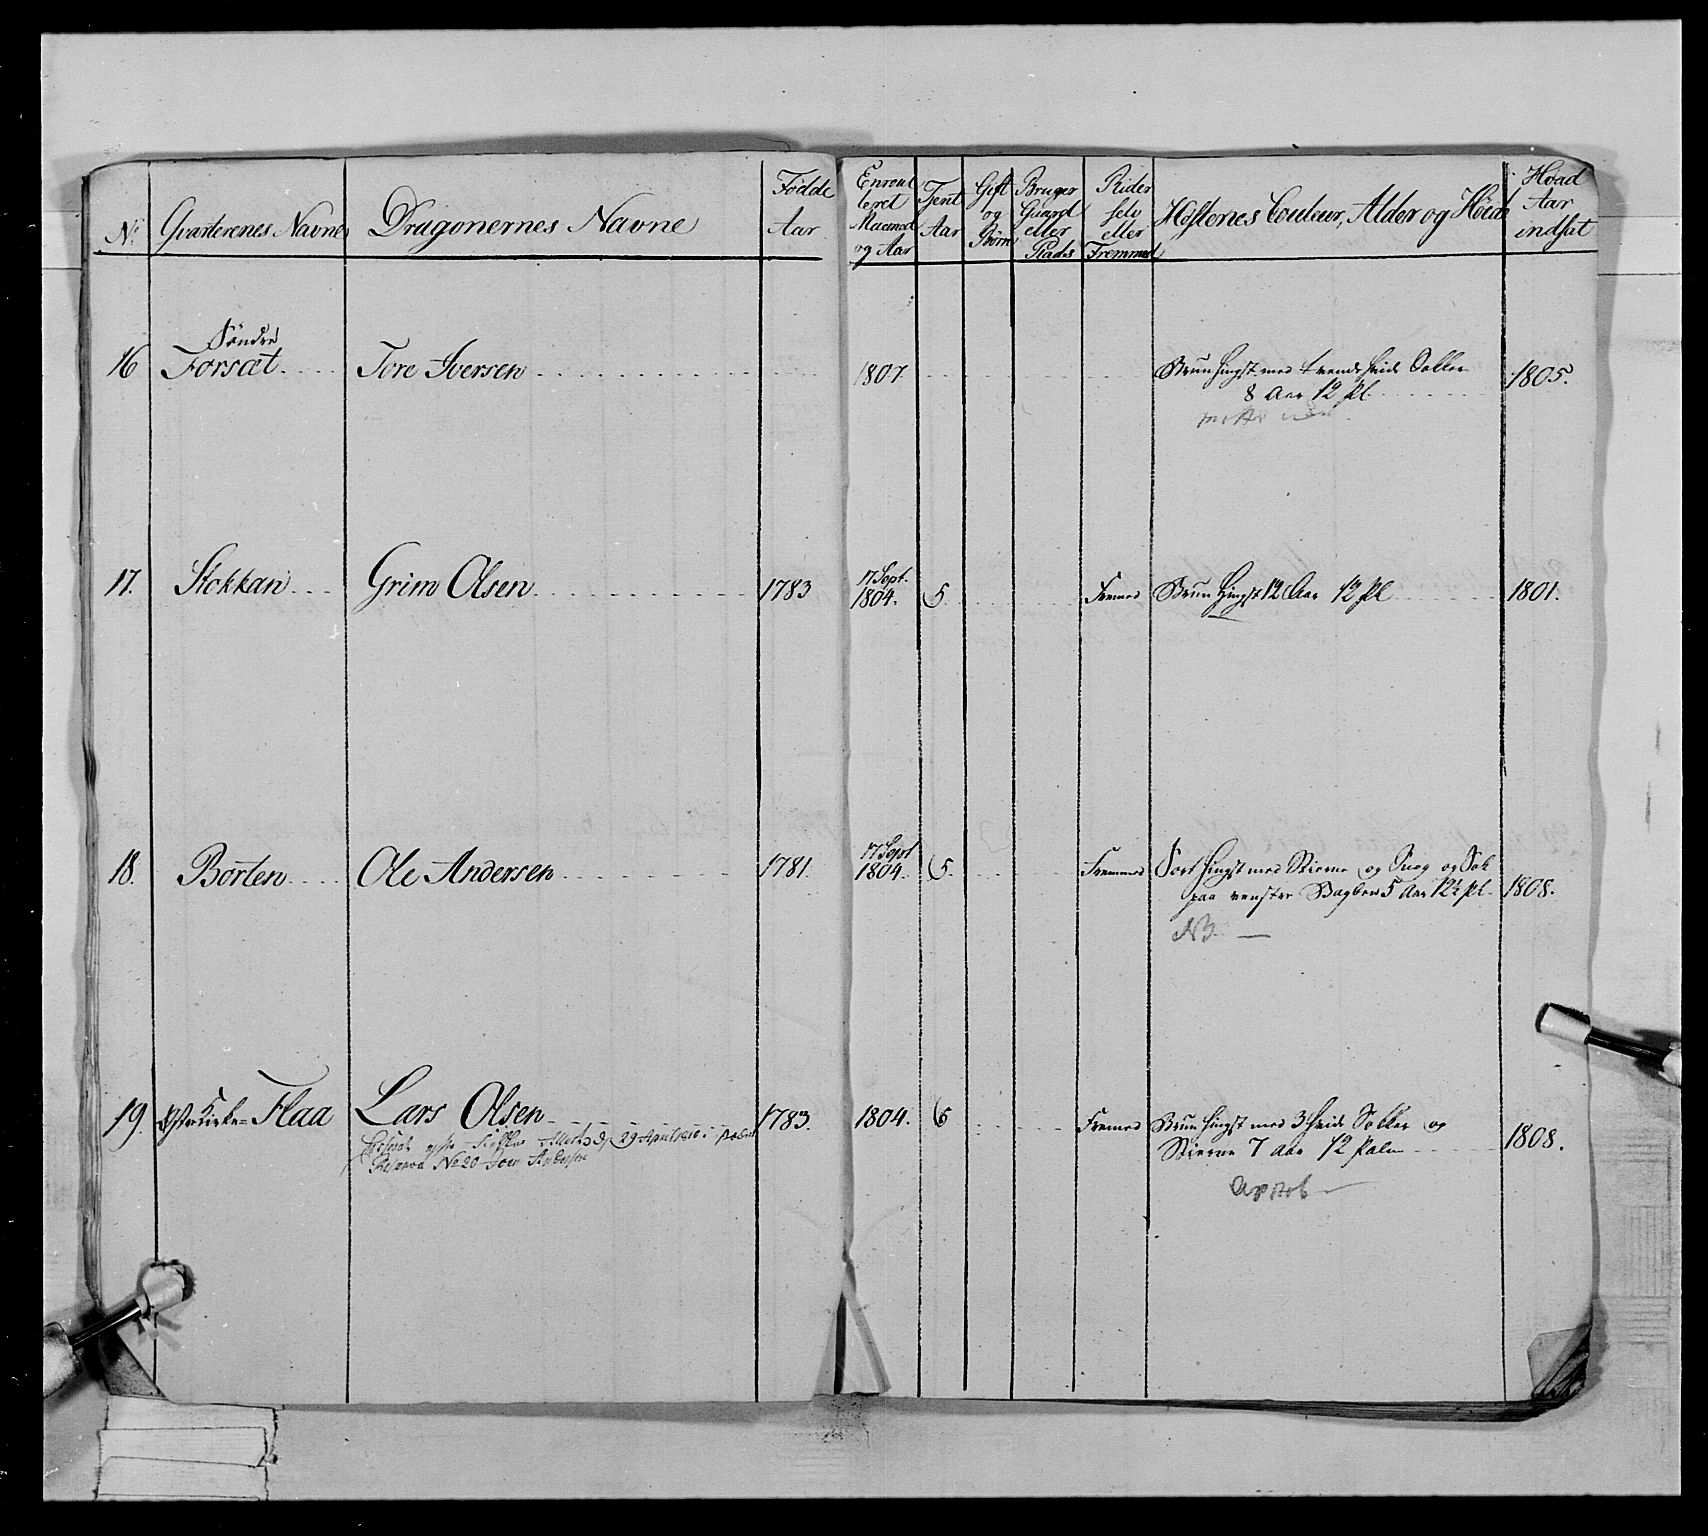 N: Qvarterenes Navne Dragonernes Navne Fødde Aar Enroulleret Maaned og Aar Tjent Aar Gift og Børn Bruger Gaard eller Plads Rider selv eller Fremmed Hæstenes Couleur, Alder og Høide Hvad Aar indsat
Søndre
16 Forsæt Tore Iversen 1807 Bruun Hingst med trende hvide Sokker 1805.
8 Aar 12 Pl.
17. Stokkan Grim Olsen 1783 17 Sept. 1804. 5 Fremed Bruun Hingst 12 Aar 12 Pl 1801.
18. Borten Ole Andersen 1781. 17 Sept 1804. 5. Fremmed Sort Hingst med Stierne og Snog og Sok
paa venstre Bagbeen 5 Aar 12½ Pl. 1808.
NB. —
19. Kirke-Flaa Lars Olsen 1783. 1804. 6 Fremed Bruun Hingst med 3 hvide Sokker og
Stierne 7 Aar 12 Palm 1808.
29 April 1810
No 20